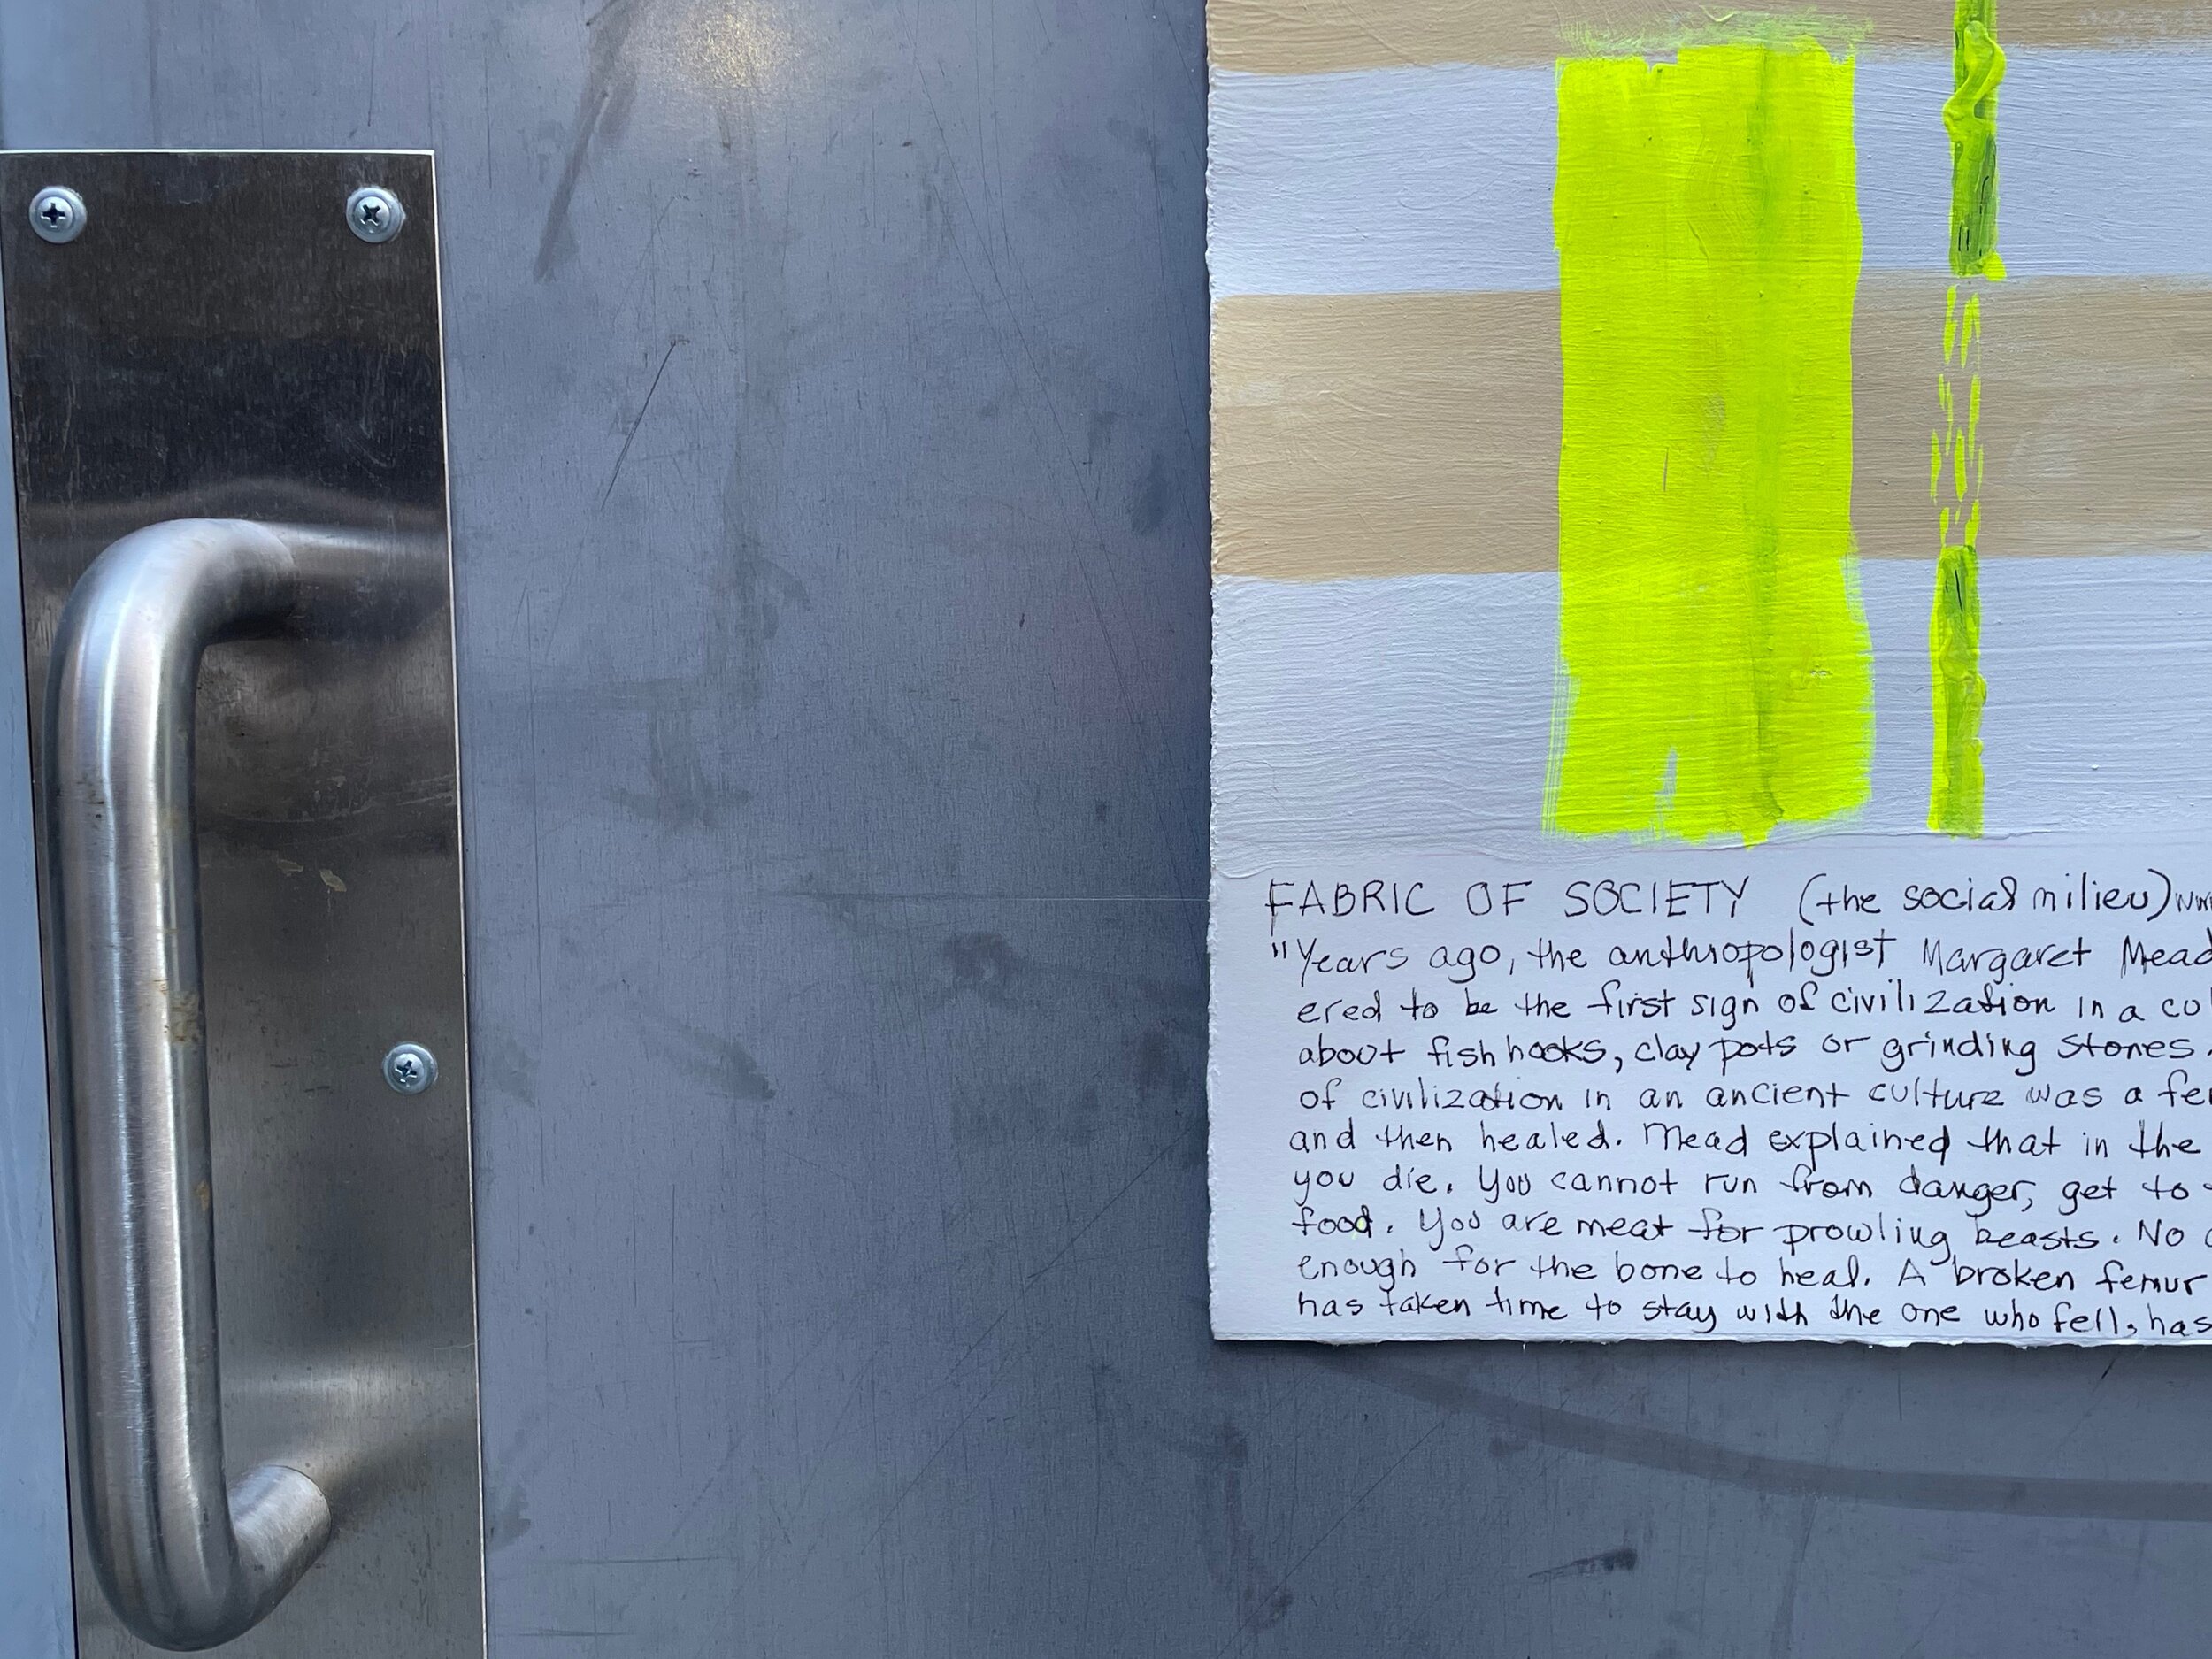 FABRIC OF SOCIETY (the social milieu)
"Years ago, the anthropologist Margaret Mead
ered to be the first sign of civilization in a
about fish hooks, clay pots or grinding stones.
of civilization in an ancient culture was a
and then healed. Mead explained that in the
you die. You cannot run from danger, get to
food. You are meat for prowling beasts. No
enough for the bone to heal. A broken femur
has taken time to stay with the one who fell, has